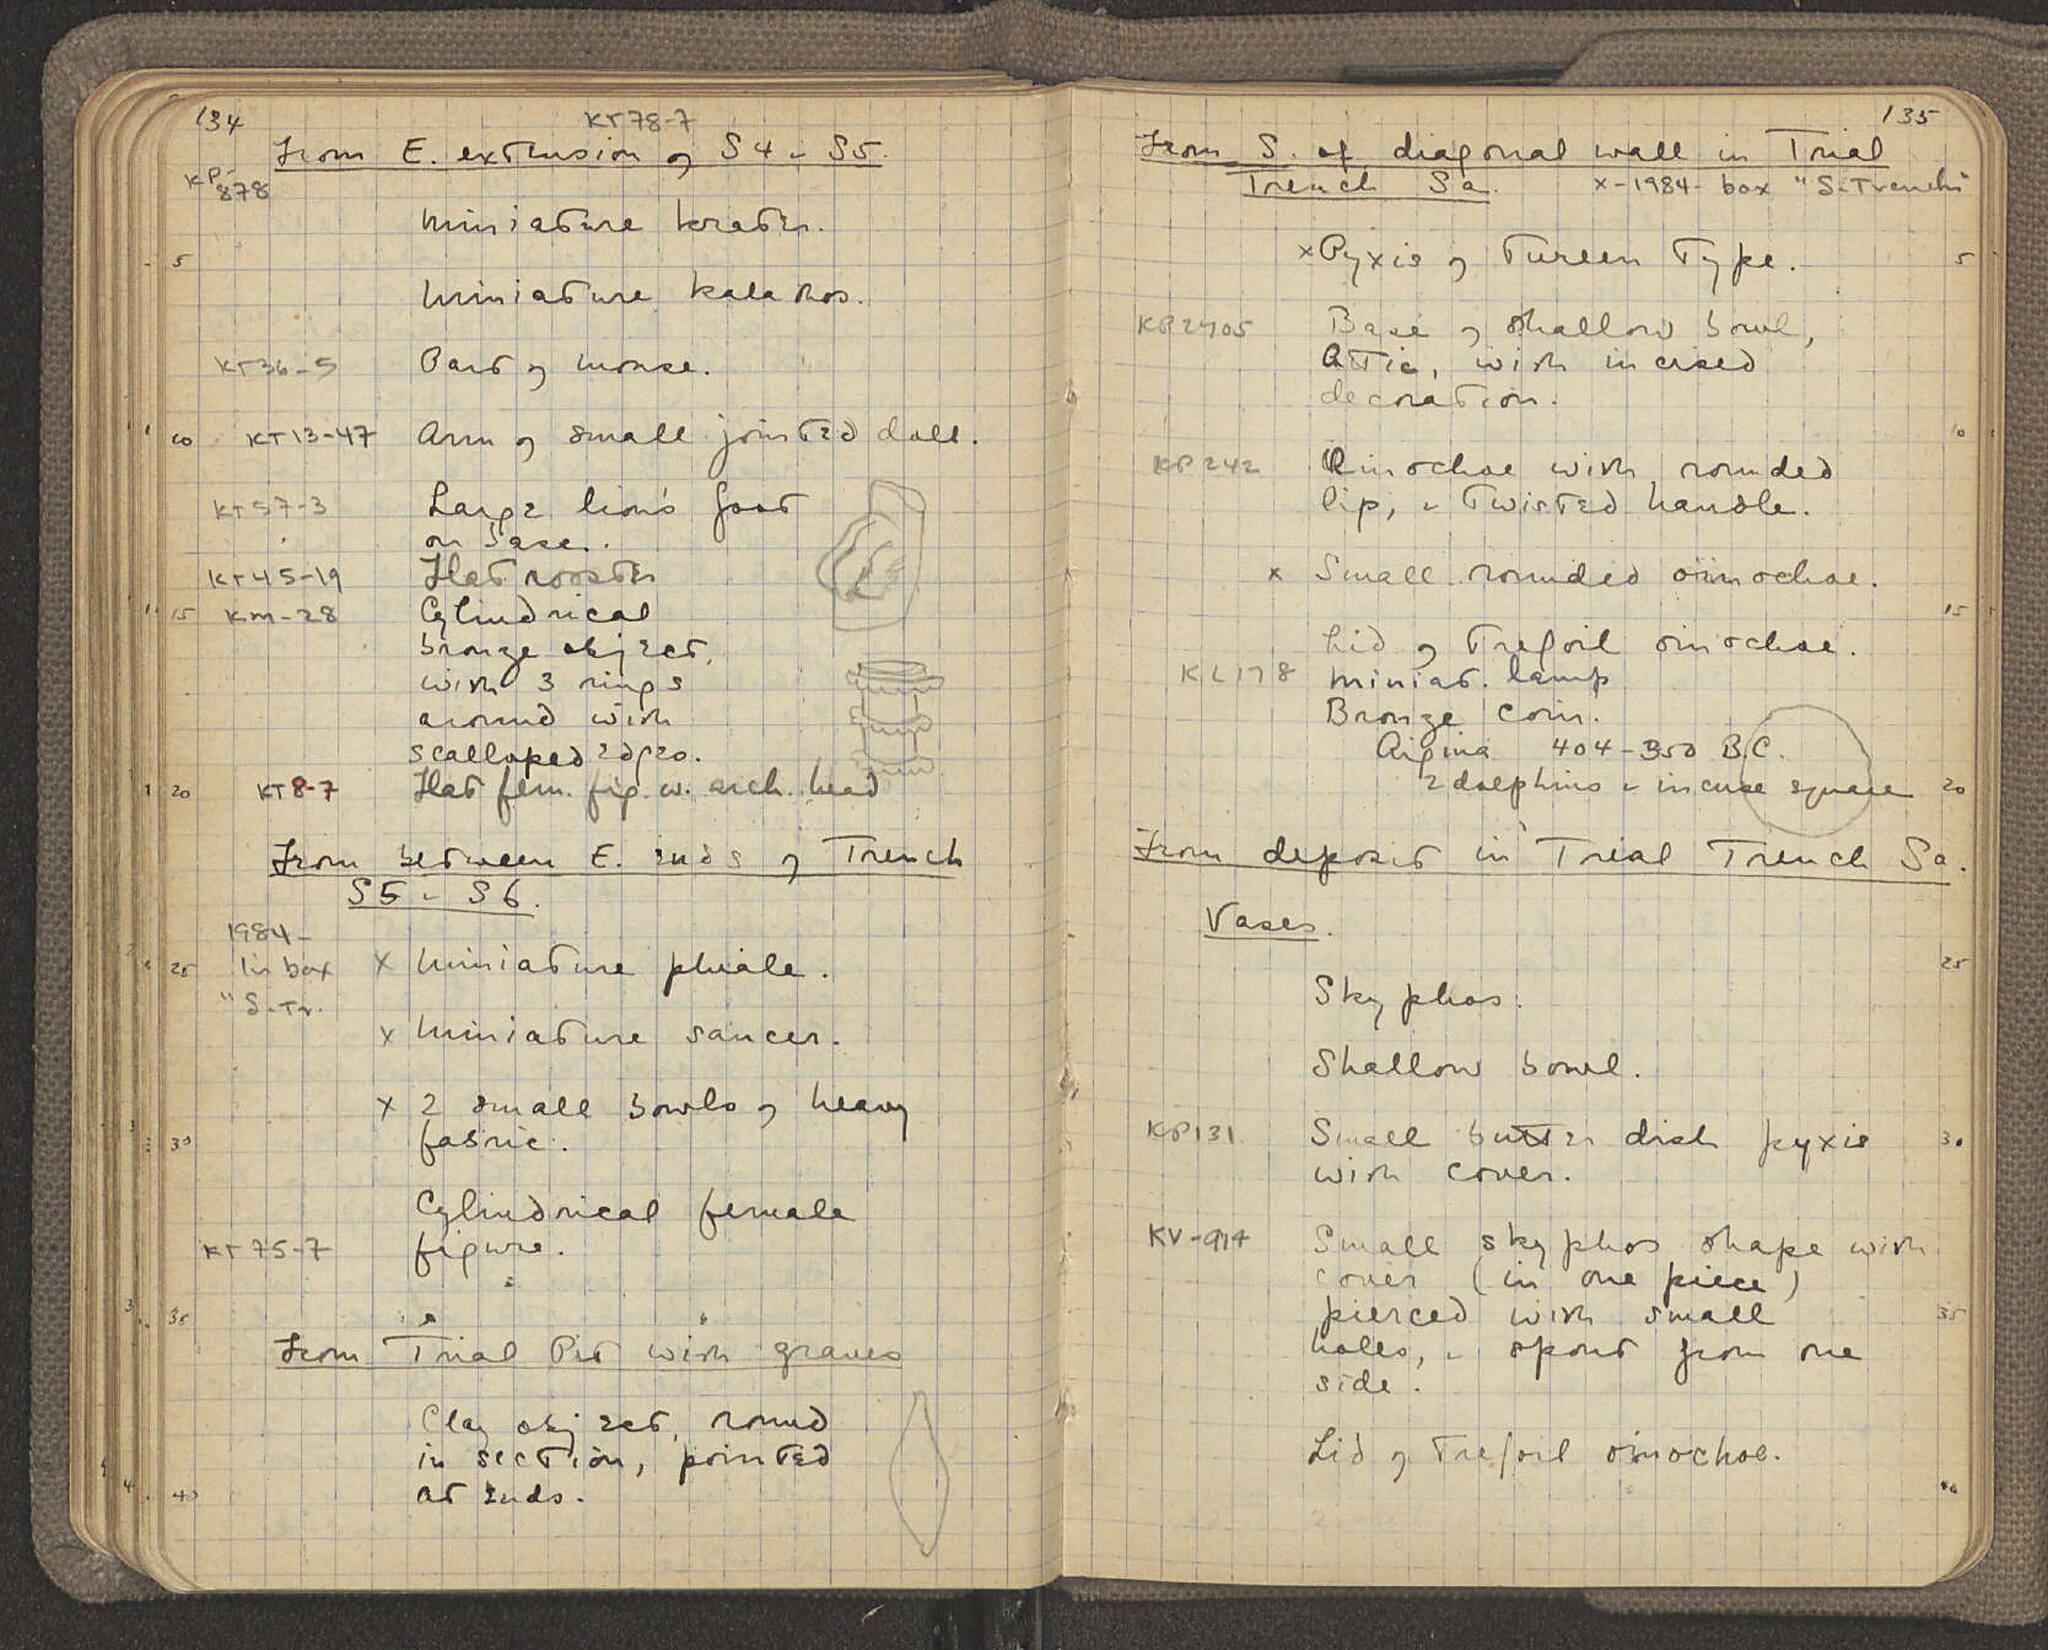 134
KT78-7
From E. extension of S4 - S5.
KP-
878
Miniature krater.
5
Miniature kalathos.
KT36-5 Part of mouse.
10 KT13-47 Arm of small jointed doll.
KT57-3 Large lion's foot
on base.
KT45-19 Flat rooster
15 KM-28 Cylindrical
bronze object,
with 3 rings
around with
scalloped edges.
20 KT8-7 Flat fem. fig. w. arch. head
From between E. ends of Trench
S5 - S6.
1984-
25 in box x Miniature phiale.
"S-Tr.
x Miniature saucer.
x 2 small bowls of heavy
30 fabric.
Cylindrical female
KT75-7 figure.
35
From Trial Pit with graves
Clay object, round
in section, pointed
40 at ends.
135
From S. of diagonal wall in Trial
Trench Sa. x-1984- box "S-Trench"
x Pyxis of Tureen Type. 5
KP2705 Base of shallow bowl,
Attic, with incised
decoration.
10
KP242 Oinochoe with rounded
lip, & twisted handle.
x Small rounded oinochoe.
15
Lid of Trefoil oinochoe.
KL178 Miniat. lamp
Bronze coin.
Aigina 404-350 B.C.
2 dolphins & incuse square 20
From deposit in Trial Trench Sa.
Vases.
25
Skyphos.
Shallow bowl.
KP131 Small butter dish pyxis 30
with cover.
KV-914 Small skyphos shape with
cover (in one piece)
pierced with small 35
holes, & spout from one
side.
Lid of Trefoil oinochoe.
40